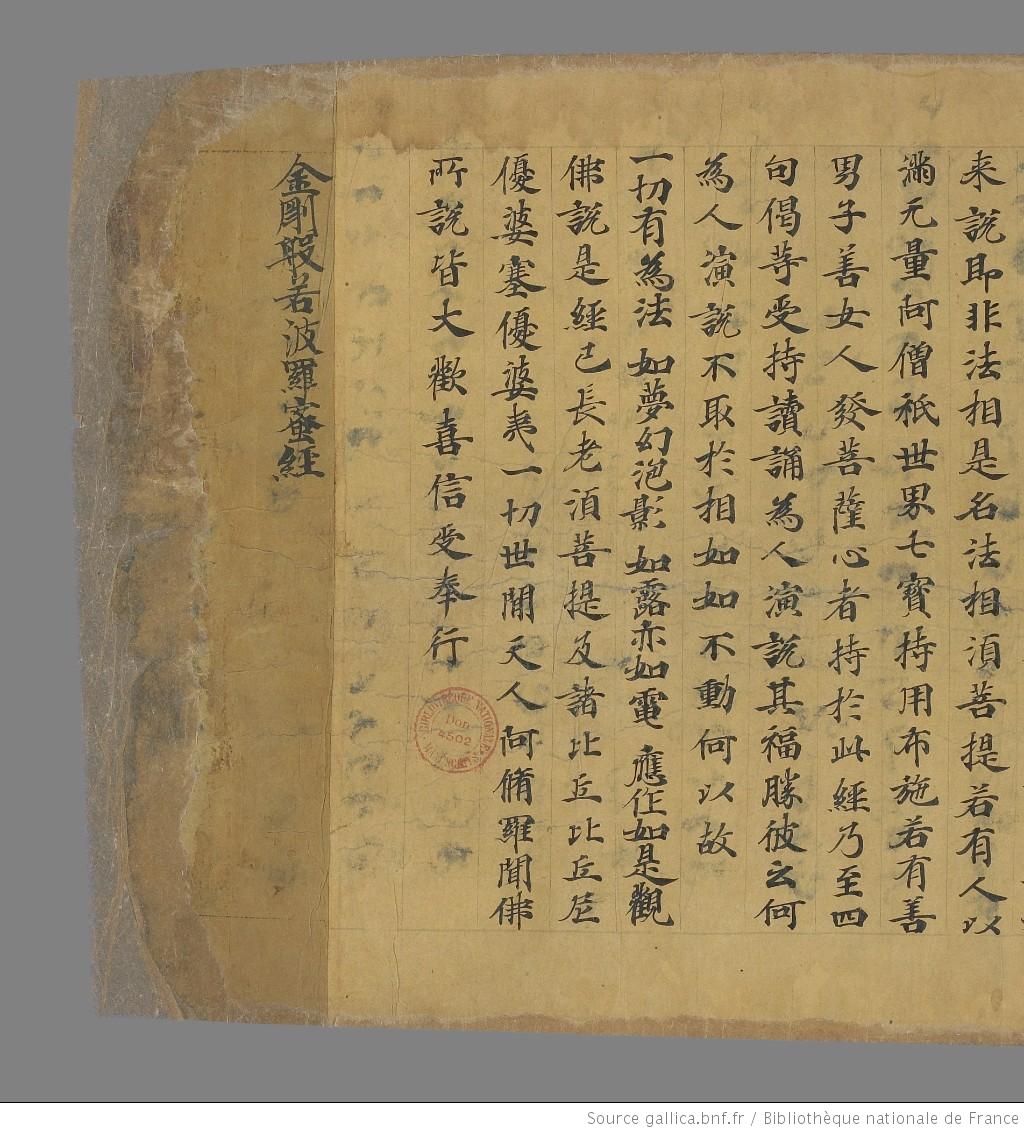 来說即非法相是名法相湏菩提若有人以
滿无量阿僧祇世界七寶持用布施若有善
男子善女人發菩薩心者持於此經乃至四
句偈等受持讀誦為人演說其福勝彼云何
為人演說不取於相如如不動何以故
一切有為法 如夢幻泡影 如露亦如電 應作如是觀
佛說是經已長老湏菩提及諸比丘比丘尼
優婆塞優婆夷一切世間天人阿脩羅聞佛
所說皆大歡喜信受奉行
金剛般若波羅蜜經
Don
4502
Source gallica.bnf.fr / Bibliothèque nationale de France